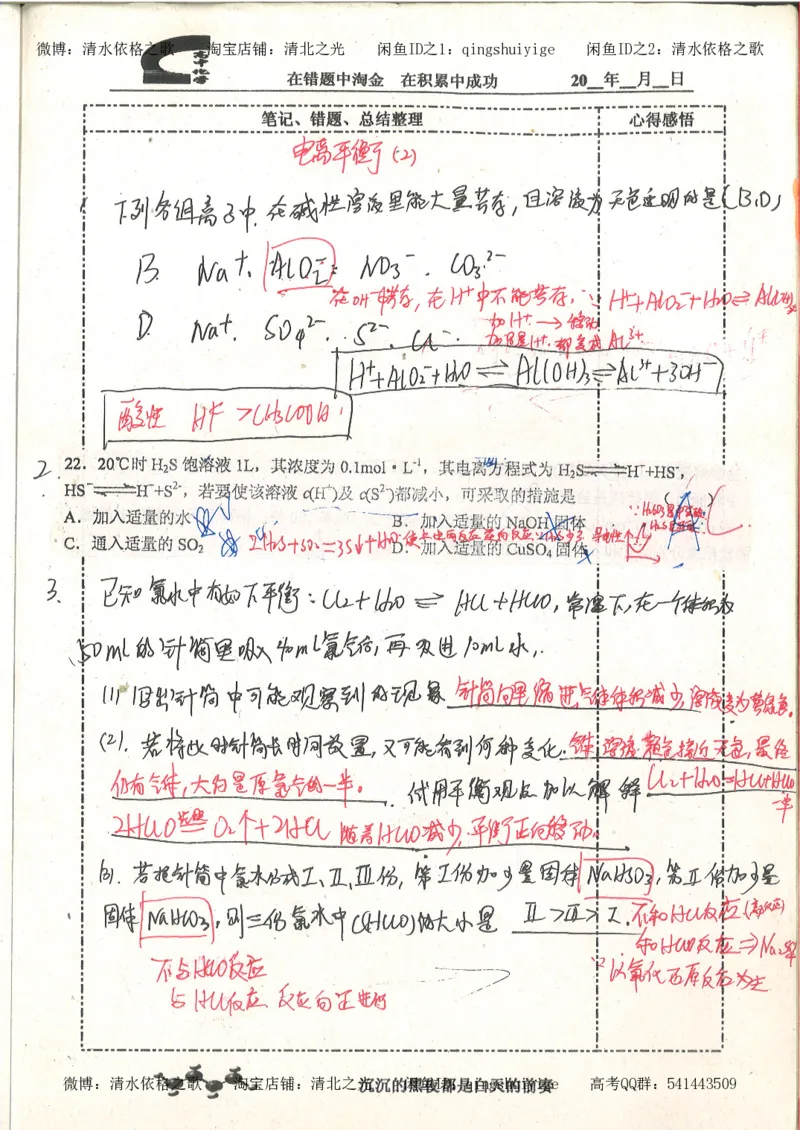 微博：清水依格之歌 淘宝店铺：清北之光 闲鱼ID之1：qingshuiyige 闲鱼ID之2：清水依格之歌
在错题中淘金 在积累中成功 20__年__月__日
笔记、错题、总结整理 心得感悟
电离平衡(2)
下列各组离子中，在碱性溶液里能大量共存，且溶液为无色透明的是(B,D)
B. Na⁺、AlO₂⁻、NO₃⁻、CO₃²⁻
在OH⁻中共存，在H⁺中不能共存，∵ H⁺+AlO₂⁻+H₂O⇌Al(OH)₃
D. Na⁺、SO₄²⁻、S²⁻、Cl⁻
H⁺+AlO₂⁻+H₂O⇌Al(OH)₃⇌Al³⁺+3OH⁻
酸性 H⁺>CH₃COOH
2. 22. 20℃时H₂S饱溶液1L，其浓度为0.1mol·L⁻¹，其电离方程式为H₂S⇌H⁺+HS⁻,
HS⁻⇌H⁺+S²⁻，若要使该溶液c(H⁺)及c(S²⁻)都减小，可采取的措施是 ( )
A．加入适量的水 B．加入适量的NaOH固体
C．通入适量的SO₂ D．加入适量的CuSO₄固体
2H₂S+SO₂=3S↓+H₂O
3. 已知氯水中有如下平衡：Cl₂+H₂O⇌HCl+HClO，常温下，在一个体积为
50mL的针筒里吸入40mL氯气后，再吸进10mL水，.
(1) 写出针筒中可能观察到的现象 针筒向里缩进气体体积减少，溶液变为黄绿色。
(2). 若将此时针筒长时间放置，又可能看到何种变化. 溶液颜色接近无色，最终
仍有气体，大约是原氯气的一半。. 试用平衡观点加以解释. Cl₂+H₂O⇌HCl+HClO
2HClO=O₂↑+2HCl 随着HClO减少，平衡正向移动。 一半
(3). 若把针筒中氯水分成Ⅰ、Ⅱ、Ⅲ份，第Ⅰ份加少量固体NaHSO₃，第Ⅱ份加少量
固体NaHCO₃，则三份氯水中c(HClO)的大小是 Ⅱ>Ⅲ>Ⅰ. 不和HCl反应
和HClO反应
不与HClO反应 ∵以氧化还原反应为主
与HCl反应 反应向正进行
微博：清水依格之歌 淘宝店铺：清北之光 沉沉的黑夜都是白天的前奏 高考QQ群：541443509